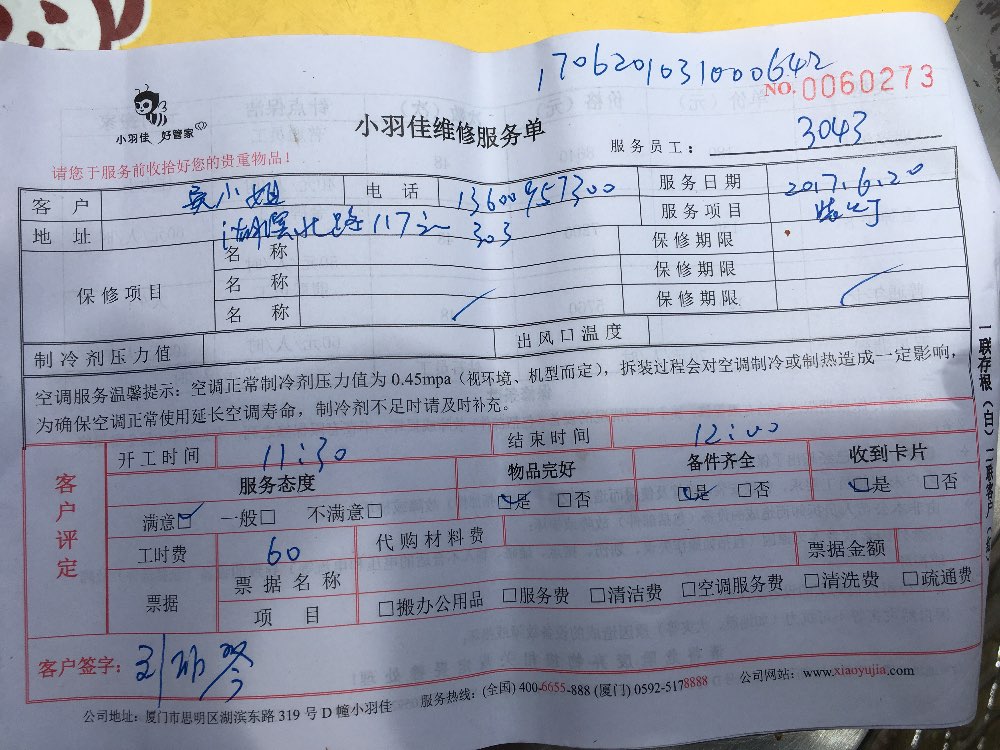 1706201031000642
NO. 0060273
小羽佳 好管家
小羽佳维修服务单
服务员工： 3043
请您于服务前收拾好您的贵重物品！
客 户 吴小姐 电 话 13600957300 服务日期 2017.6.20
地 址 湖滨北路117之303 服务项目 装灯
保修项目 名 称 保修期限
名 称 保修期限
名 称 保修期限
制冷剂压力值 出风口温度
空调服务温馨提示：空调正常制冷剂压力值为 0.45mpa（视环境、机型而定），拆装过程会对空调制冷或制热造成一定影响，
为确保空调正常使用延长空调寿命，制冷剂不足时请及时补充。
客户评定
开工时间 11:30 结束时间 12:00
服务态度 物品完好 备件齐全 收到卡片
满意☑ 一般□ 不满意□ ☑是 □否 ☑是 □否 ☑是 □否
工时费 60 代购材料费 票据金额
票据 票据名称
项 目 □搬办公用品 □服务费 □清洁费 □空调服务费 □清洗费 □疏通费
客户签字：
公司地址：厦门市思明区湖滨东路 319 号 D 幢小羽佳 服务热线：(全国) 400-6655-888 (厦门) 0592-5178888 公司网站：www.xiaoyujia.com
一联存根（白）二联客户